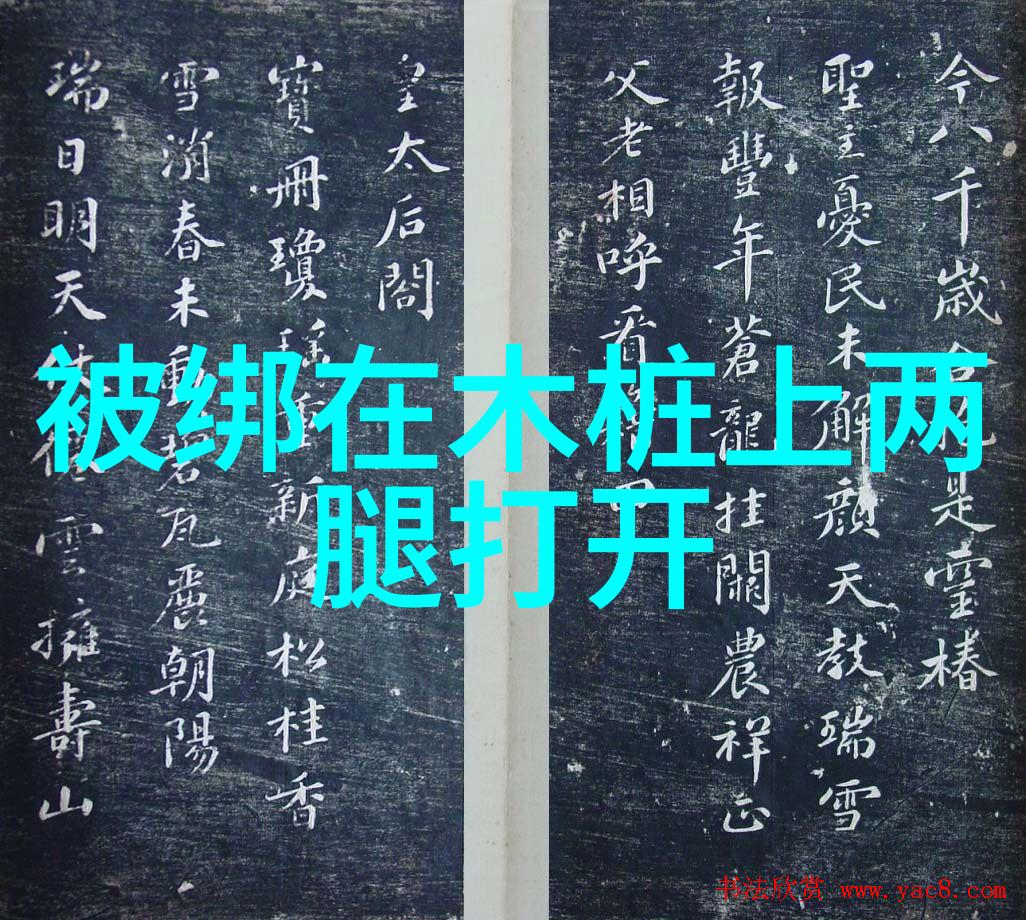 今八千歲是靈椿
聖主憂民未解顏天教瑞雪
報豐年蒼龍挂闕農祥正
父老相呼看
皇太后閣
寶冊瓊新庭松桂香
雪消春未動碧瓦麗朝陽
瑞日明天雲擁壽山
被绑在木桩上两
腿打开
书法欣赏 www.yac8.com